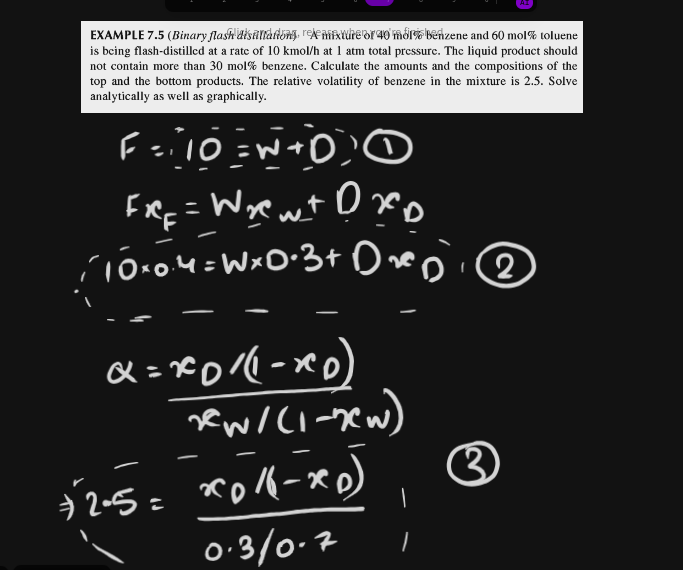 Click and drag, release when you're finished
EXAMPLE 7.5 (Binary flash distillation) A mixture of 40 mol% benzene and 60 mol% toluene
is being flash-distilled at a rate of 10 kmol/h at 1 atm total pressure. The liquid product should
not contain more than 30 mol% benzene. Calculate the amounts and the compositions of the
top and the bottom products. The relative volatility of benzene in the mixture is 2.5. Solve
analytically as well as graphically.
F = 10 = W + D, ①
F x_F = W x_W + D x_D
10 × 0.4 = W × 0.3 + D x_D ②
α = x_D / (1 - x_D)
x_W / (1 - x_W)
⇒ 2.5 = x_D / (1 - x_D) ③
0.3 / 0.7